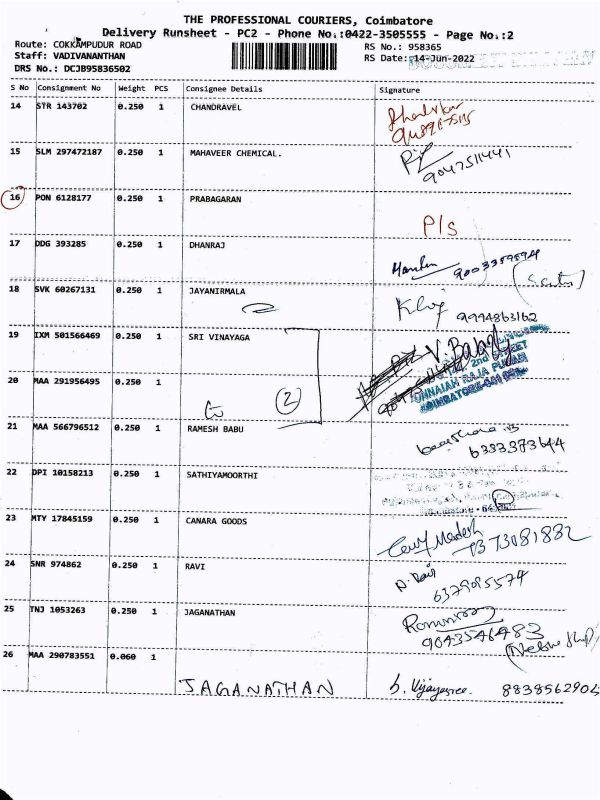 THE PROFESSIONAL COURIERS, Coimbatore
Delivery Runsheet - PC2 - Phone No.:0422-3505555 - Page No.:2
Route: COKKAMPUDUR ROAD RS No.: 958365
Staff: VADIVANANTHAN RS Date: 14-Jun-2022
DRS No.: DCJB95836502
S No Consignment No Weight PCS Consignee Details Signature
14 STR 143702 0.250 1 CHANDRAVEL
15 SLM 297472187 0.250 1 MAHAVEER CHEMICAL.
9047511441
16 PON 6128177 0.250 1 PRABAGARAN
P/s
17 DDG 393285 0.250 1 DHANRAJ
18 SVK 60267131 0.250 1 JAYANIRMALA
9994863162
19 IXM 501566469 0.250 1 SRI VINAYAGA
2nd STREET
20 MAA 291956495 0.250 1
RAJA
2
21 MAA 566796512 0.250 1 RAMESH BABU
6383373644
22 DPI 10158213 0.250 1 SATHIYAMOORTHI
23 MTY 17845159 0.250 1 CANARA GOODS
7373081882
24 SNR 974862 0.250 1 RAVI
25 TNJ 1053263 0.250 1 JAGANATHAN
9843546483
26 MAA 290783551 0.060 1
JAGANATHAN b. Vijayasree. 8838562904